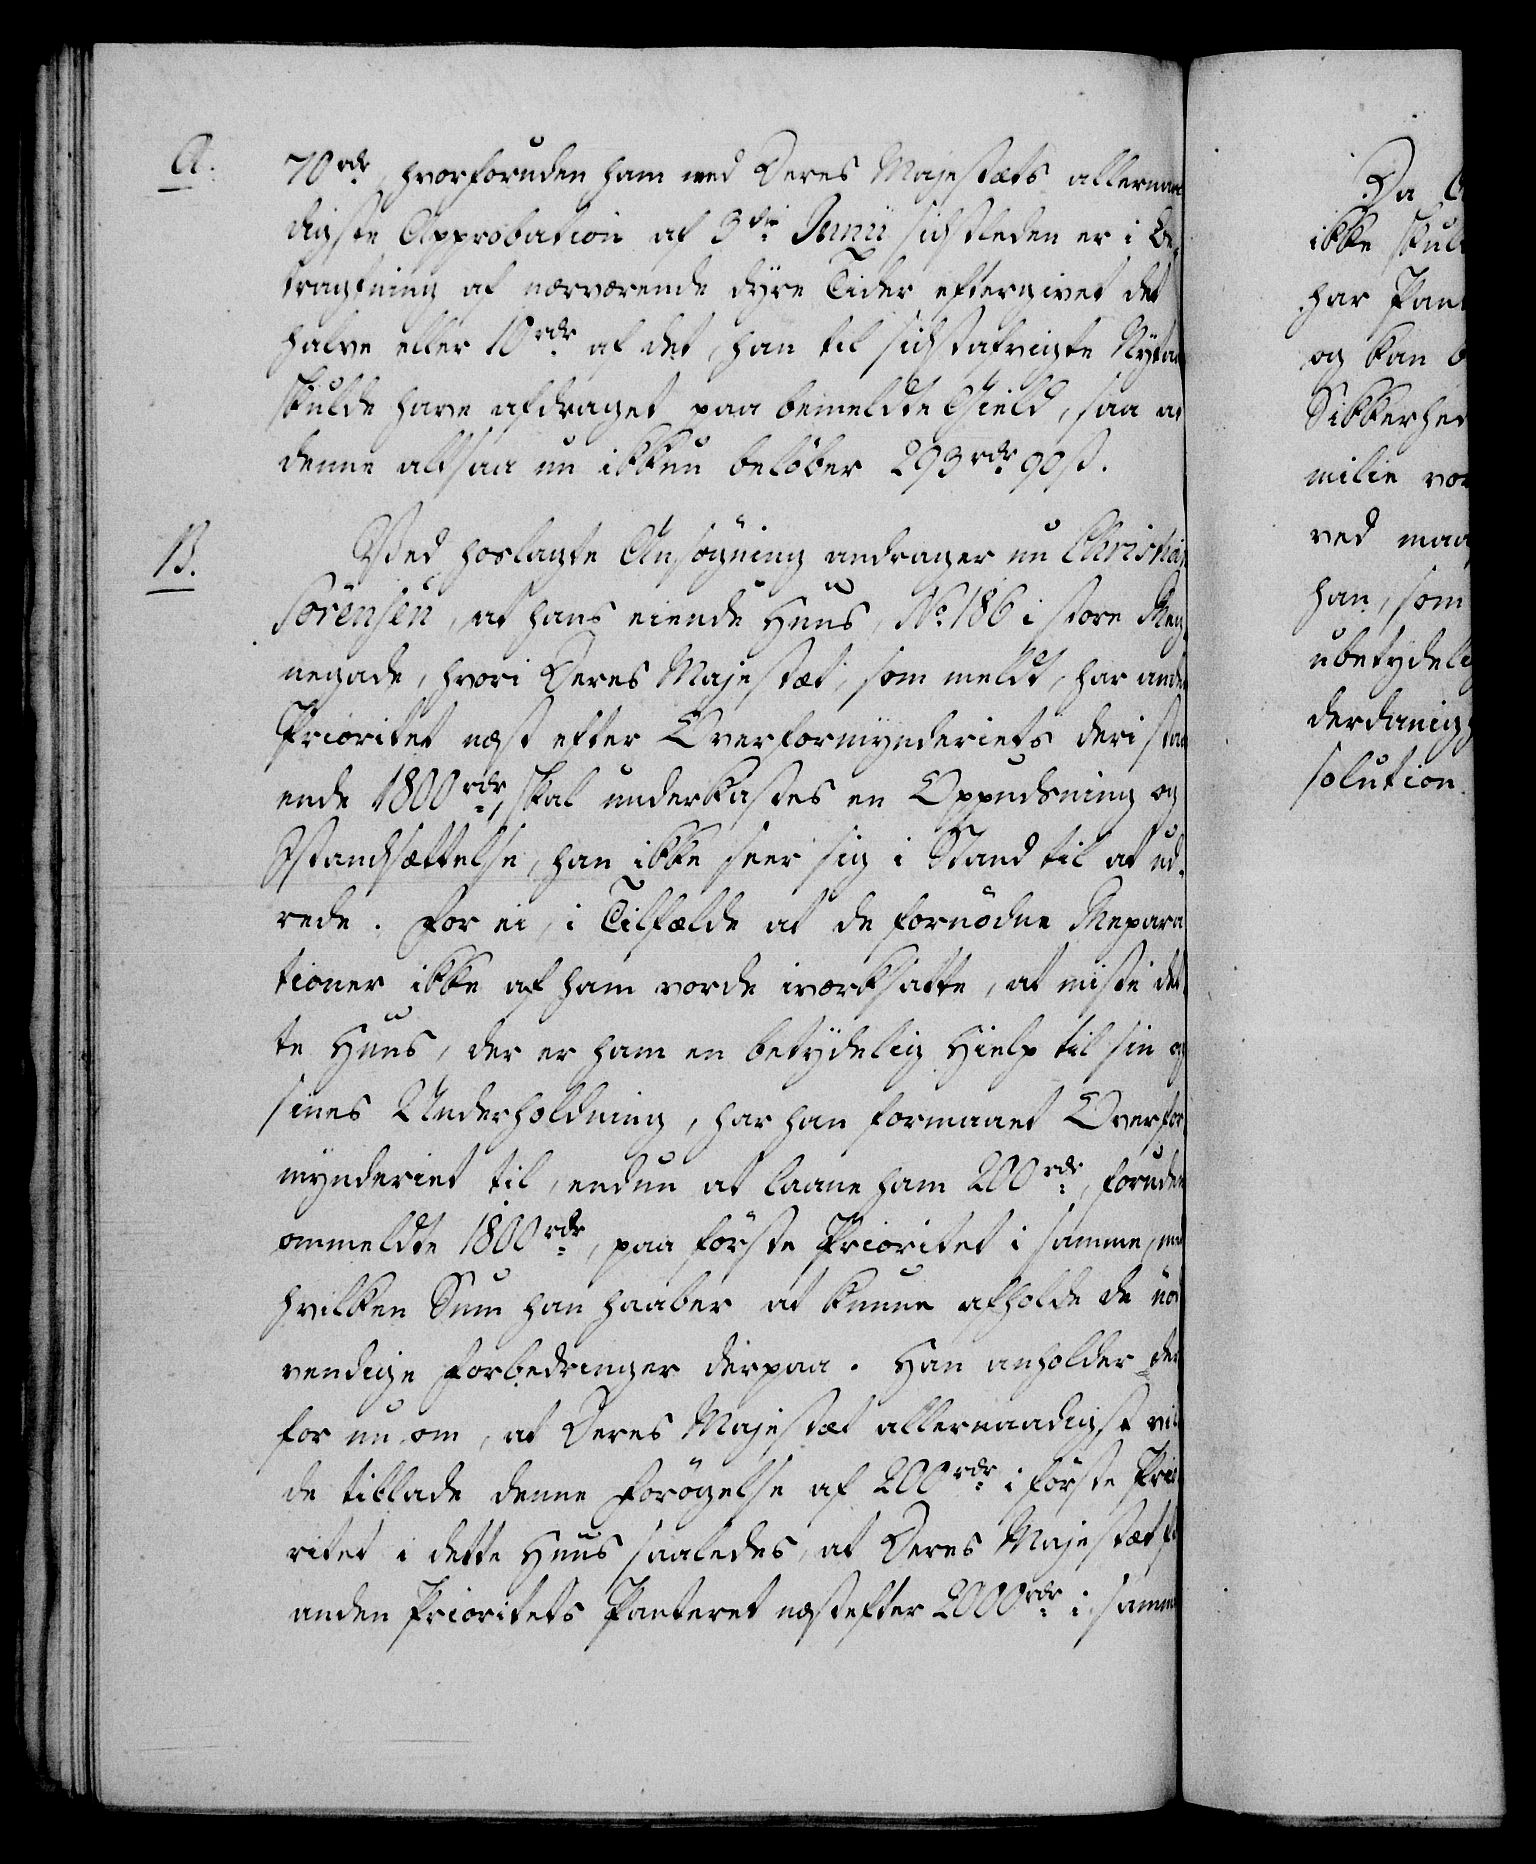 A.
70 rdr, hvorforuden ham med Deres Majestæts allernaa
digste Approbation af 3die Junii sidstleden er i Be-
tragtning af nærværende dyre Tider eftergivet det
halve eller 10 rdr af det, han til sidstafvigte Nytaar
skulde have afdraget paa bemeldte Gield, saa at
denne altsaa nu ikkun beløber 293 rdr 90 ß.
B.
Ved hoslagte Ansøgning andrager nu Christian
Sørensen, at hans eiende Huus, No 186 i store Reg-
negade, hvori Deres Majestæt, som meldt, har anden
Prioritet næst efter Overformynderiets deri staa
ende 1800 rdr, skal underkastes en Oppudsning og
Istandsættelse, han ikke seer sig i Stand til at ud-
rede. For ei, i Tilfælde at de fornødne Repara
tioner ikke af ham vorde iværksatte, at miste det-
te Huus, der er ham en betydelig Hielp til sin og
sines Underholdning, har han formaaet Overfor
mynderiet til, endnu at laane ham 200 rdr, foruden
ommeldte 1800 rdr, paa første Prioritet i samme, med
hvilken Sum han haaber at kunne afholde de nød
vendige Forbedringer derpaa. Han anholder der
for nu om, at Deres Majestæt allernaadigst vil
de tillade denne Forøgelse af 200 rdr i første Prio
ritet i dette Huus saaledes, at Deres Majestæt
anden Prioritets Panteret næstefter 2000 rdr i samme
Da
ikke skul
har Pant
og kan
Sikkerhed
milie vor
ved maa
han, som
ubetydelig
derdanigst
solution.